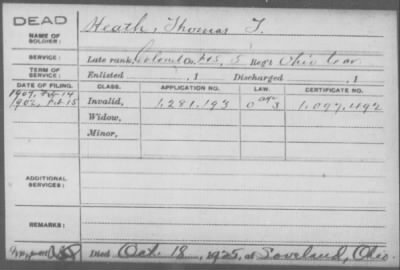 DEAD
NAME OF SOLDIER: Heath, Thomas T.
SERVICE: Late rank, Colonel Co. F&S, 5 Reg't Ohio Cav.
TERM OF SERVICE: Enlisted , 1 Discharged , 1
DATE OF FILING. CLASS. APPLICATION NO. LAW. CERTIFICATE NO.
1902, Feb 15 Invalid, 1,281,193 1,097,492
Widow,
Minor,
ADDITIONAL SERVICES:
REMARKS:
Died Oct. 18, 1925, at Loveland, Ohio.